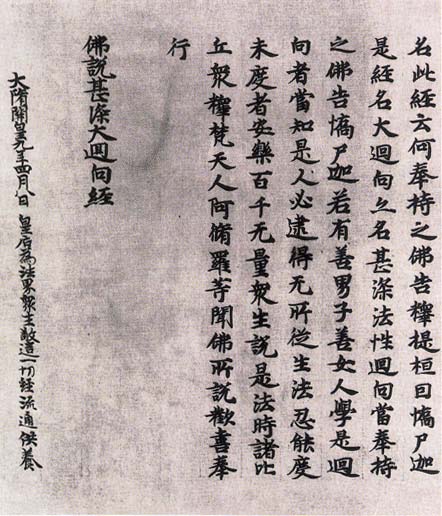 名此經云何奉持之佛告釋提桓因憍尸迦
是經名大迴向亦名甚深法性迴向當奉持
之佛告憍尸迦若有善男子善女人學是迴
向者當知是人必逮得无所從生法忍能度
未度者安樂百千无量衆生說是法時諸比
丘衆釋梵天人阿脩羅等聞佛所說歡喜奉
行
佛說甚深大迴向經
大隋開皇九年四月八日 皇后為法界衆生敬造一切經流通供養